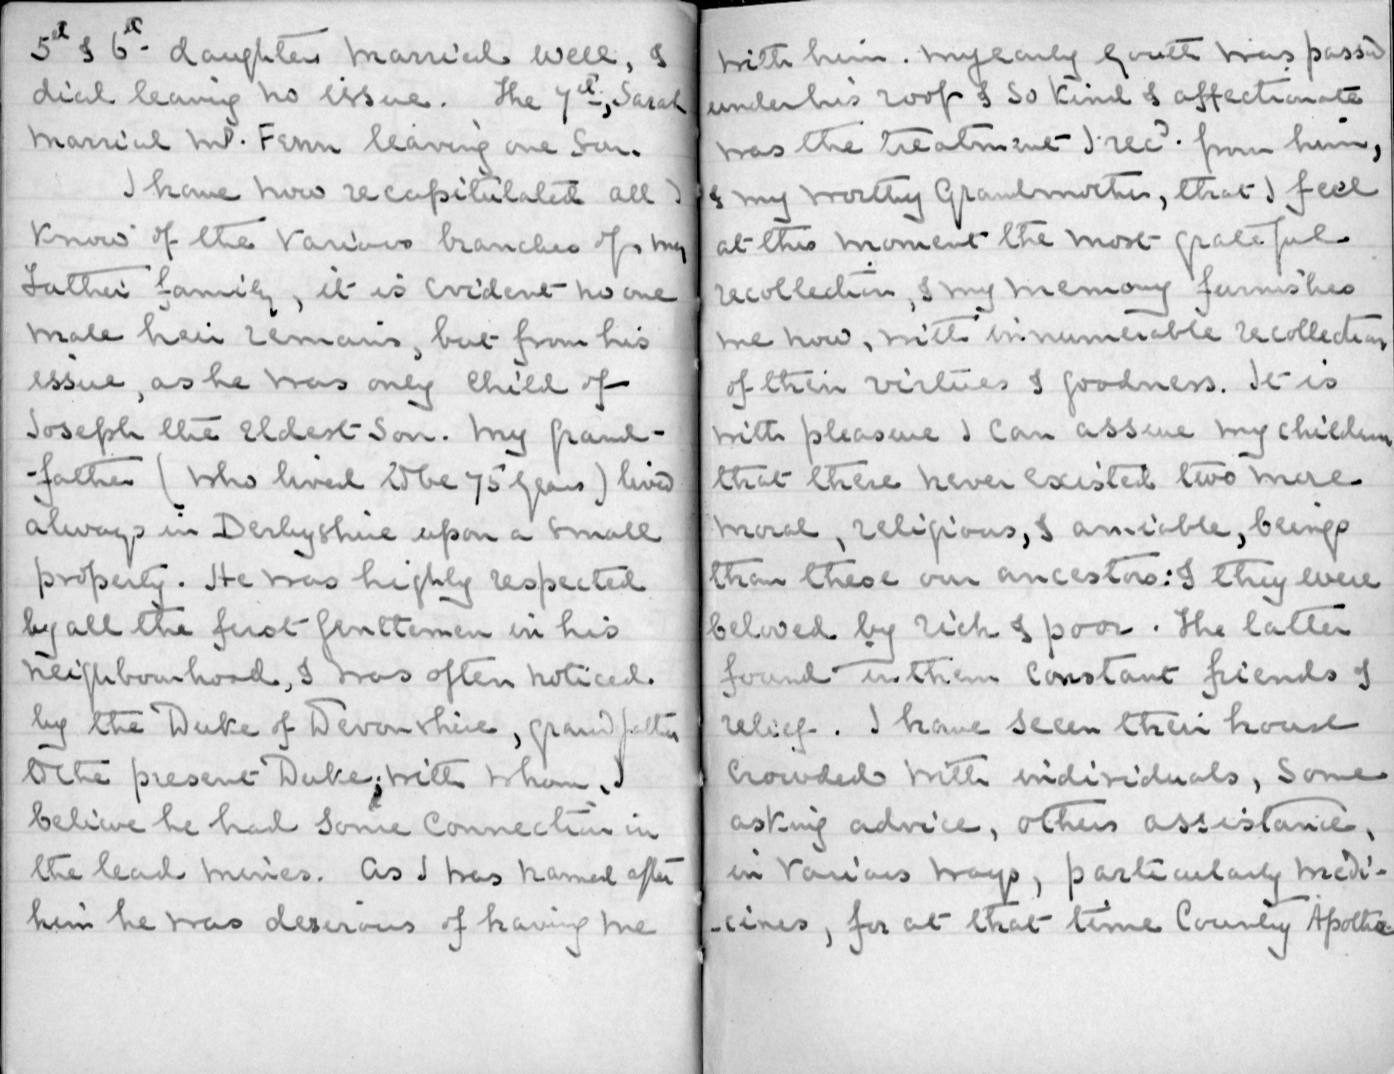 5th & 6th daughters married well, &
died leaving no issue. The 7th, Sarah
married Mr. Fenn leaving one Son.
I have now recapitulated all I
know of the various branches of my
Father family, it is evident no one
male heir remains, but from his
issue, as he was only child of
Joseph the eldest Son. My grand-
-father (who lived to be 75 years) lived
always in Derbyshire upon a small
property. He was highly respected
by all the first Gentlemen in his
neighbourhood, & was often noticed
by the Duke of Devonshire, grandfather
to the present Duke; with whom, I
believe he had some connection in
the lead mines. As I was named after
him he was desirous of having me
with him. My early youth was passed
under his roof & so kind & affectionate
was the treatment I recd. from him,
& my worthy Grandmother, that I feel
at this moment the most grateful
recollection, & my memory furnishes
me now, with innumerable recollections
of their virtues & goodness. It is
with pleasure I can assure my children
that there never existed two more
moral, religious, & amiable, beings
than these our ancestors: & they were
beloved by rich & poor. The latter
found in them constant friends &
relief. I have seen their house
crowded with individuals, some
asking advice, others assistance,
in various ways, particularly medi-
-cines, for at that time County Apothe-